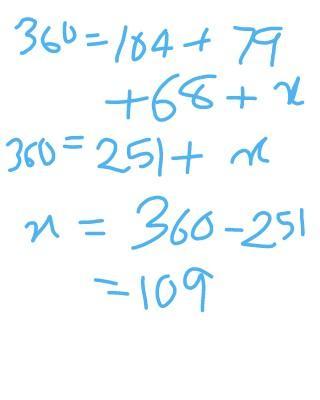 360 = 104 + 79
+ 68 + x
360 = 251 + x
x = 360 - 251
= 109